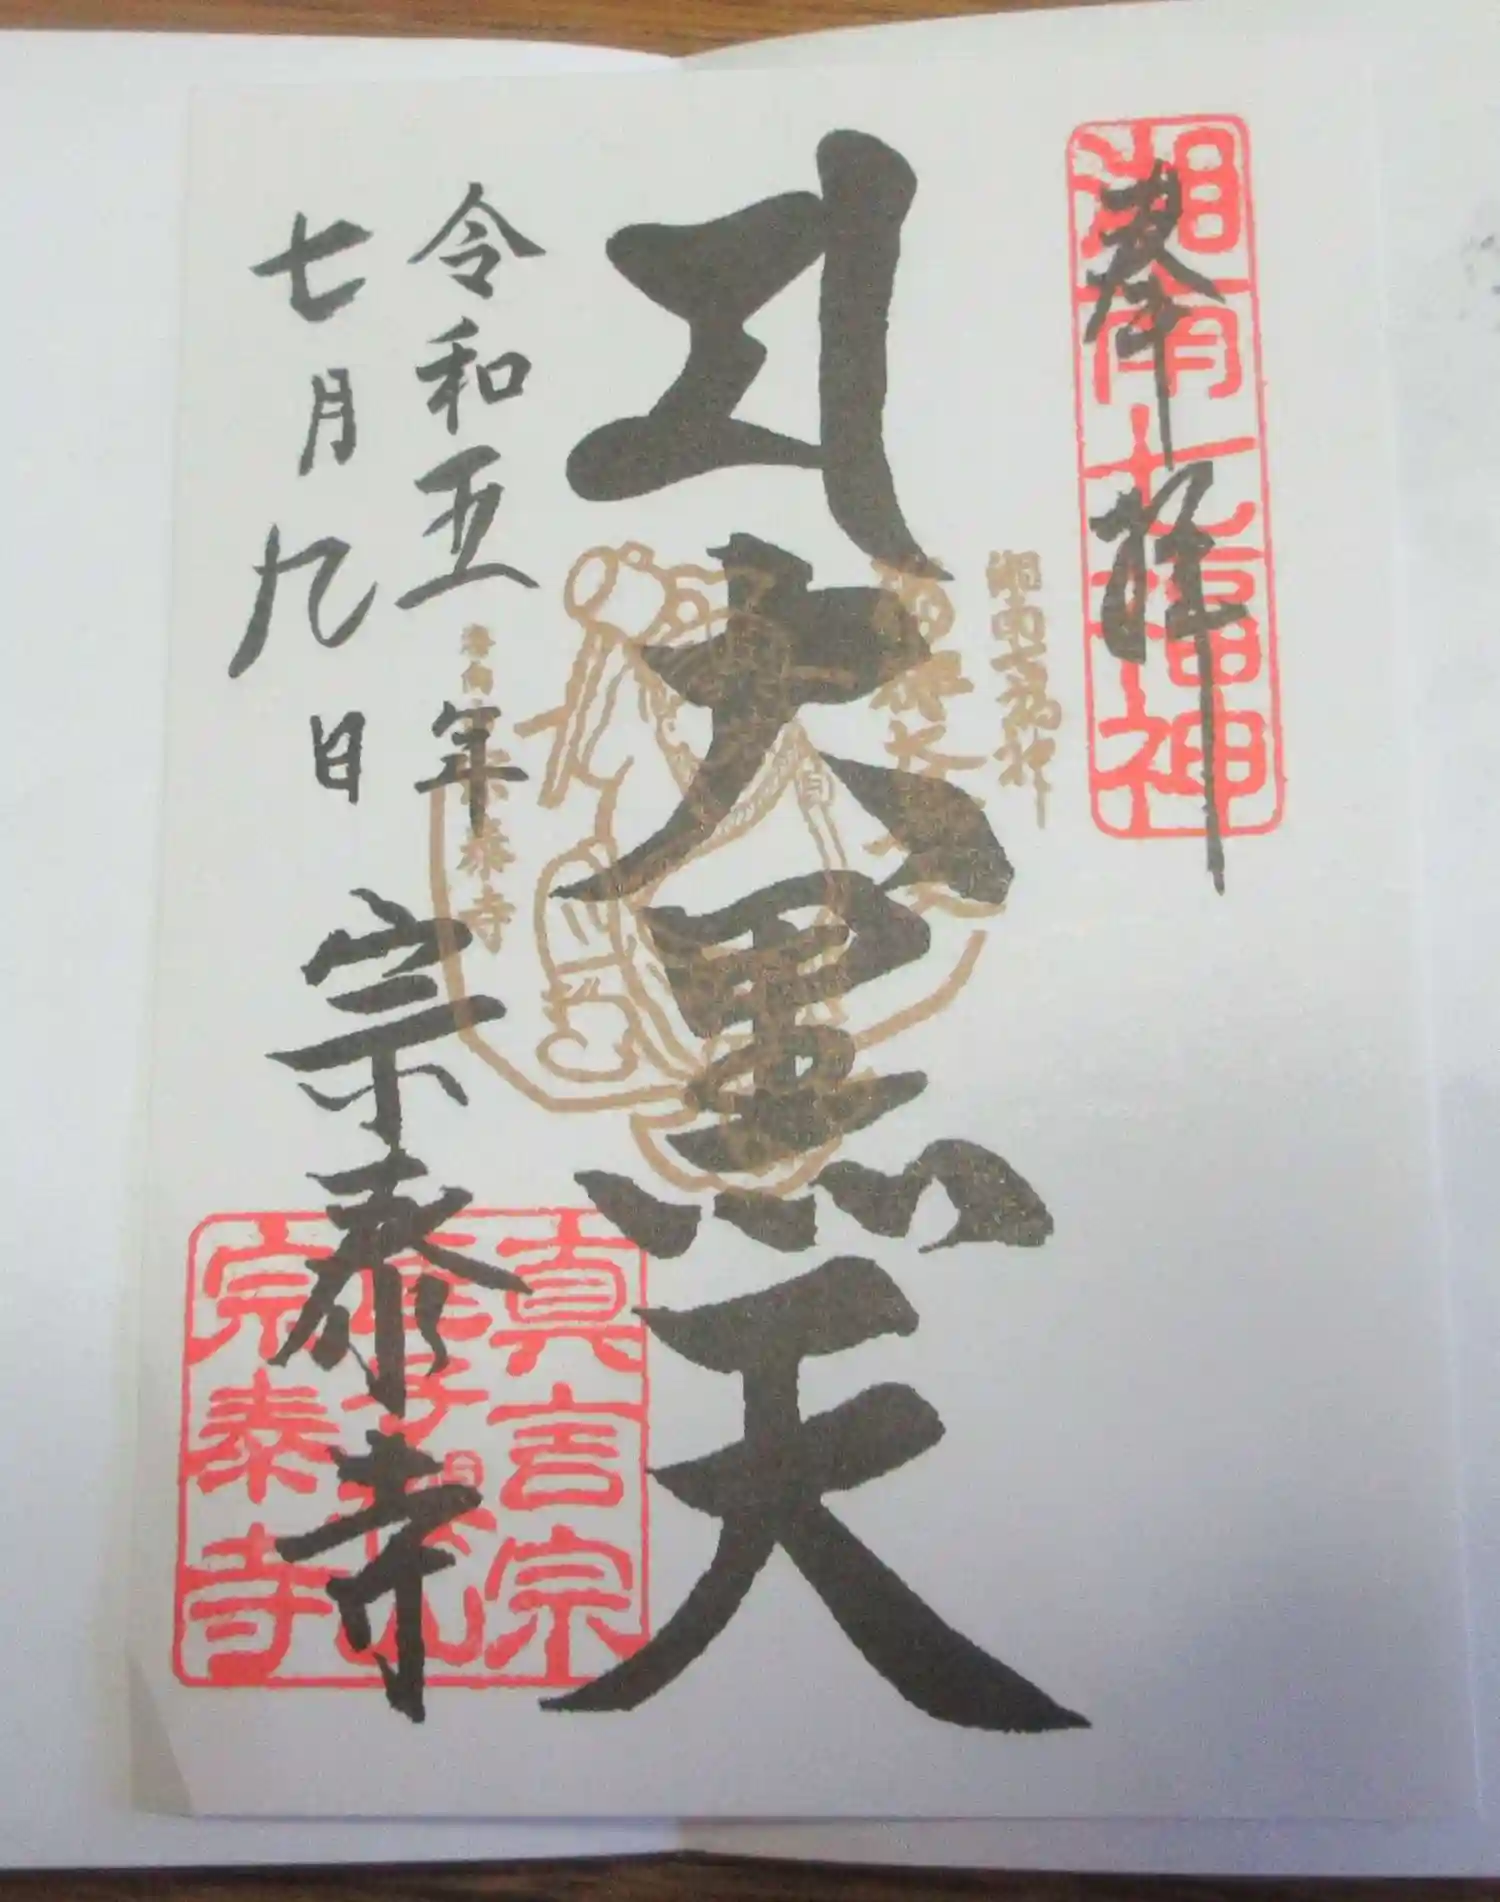 奉拝
湘南七福神
湘南七福神
大黒天
令和五年
七月九日
宗泰寺
真言宗
宗泰寺
泰寺